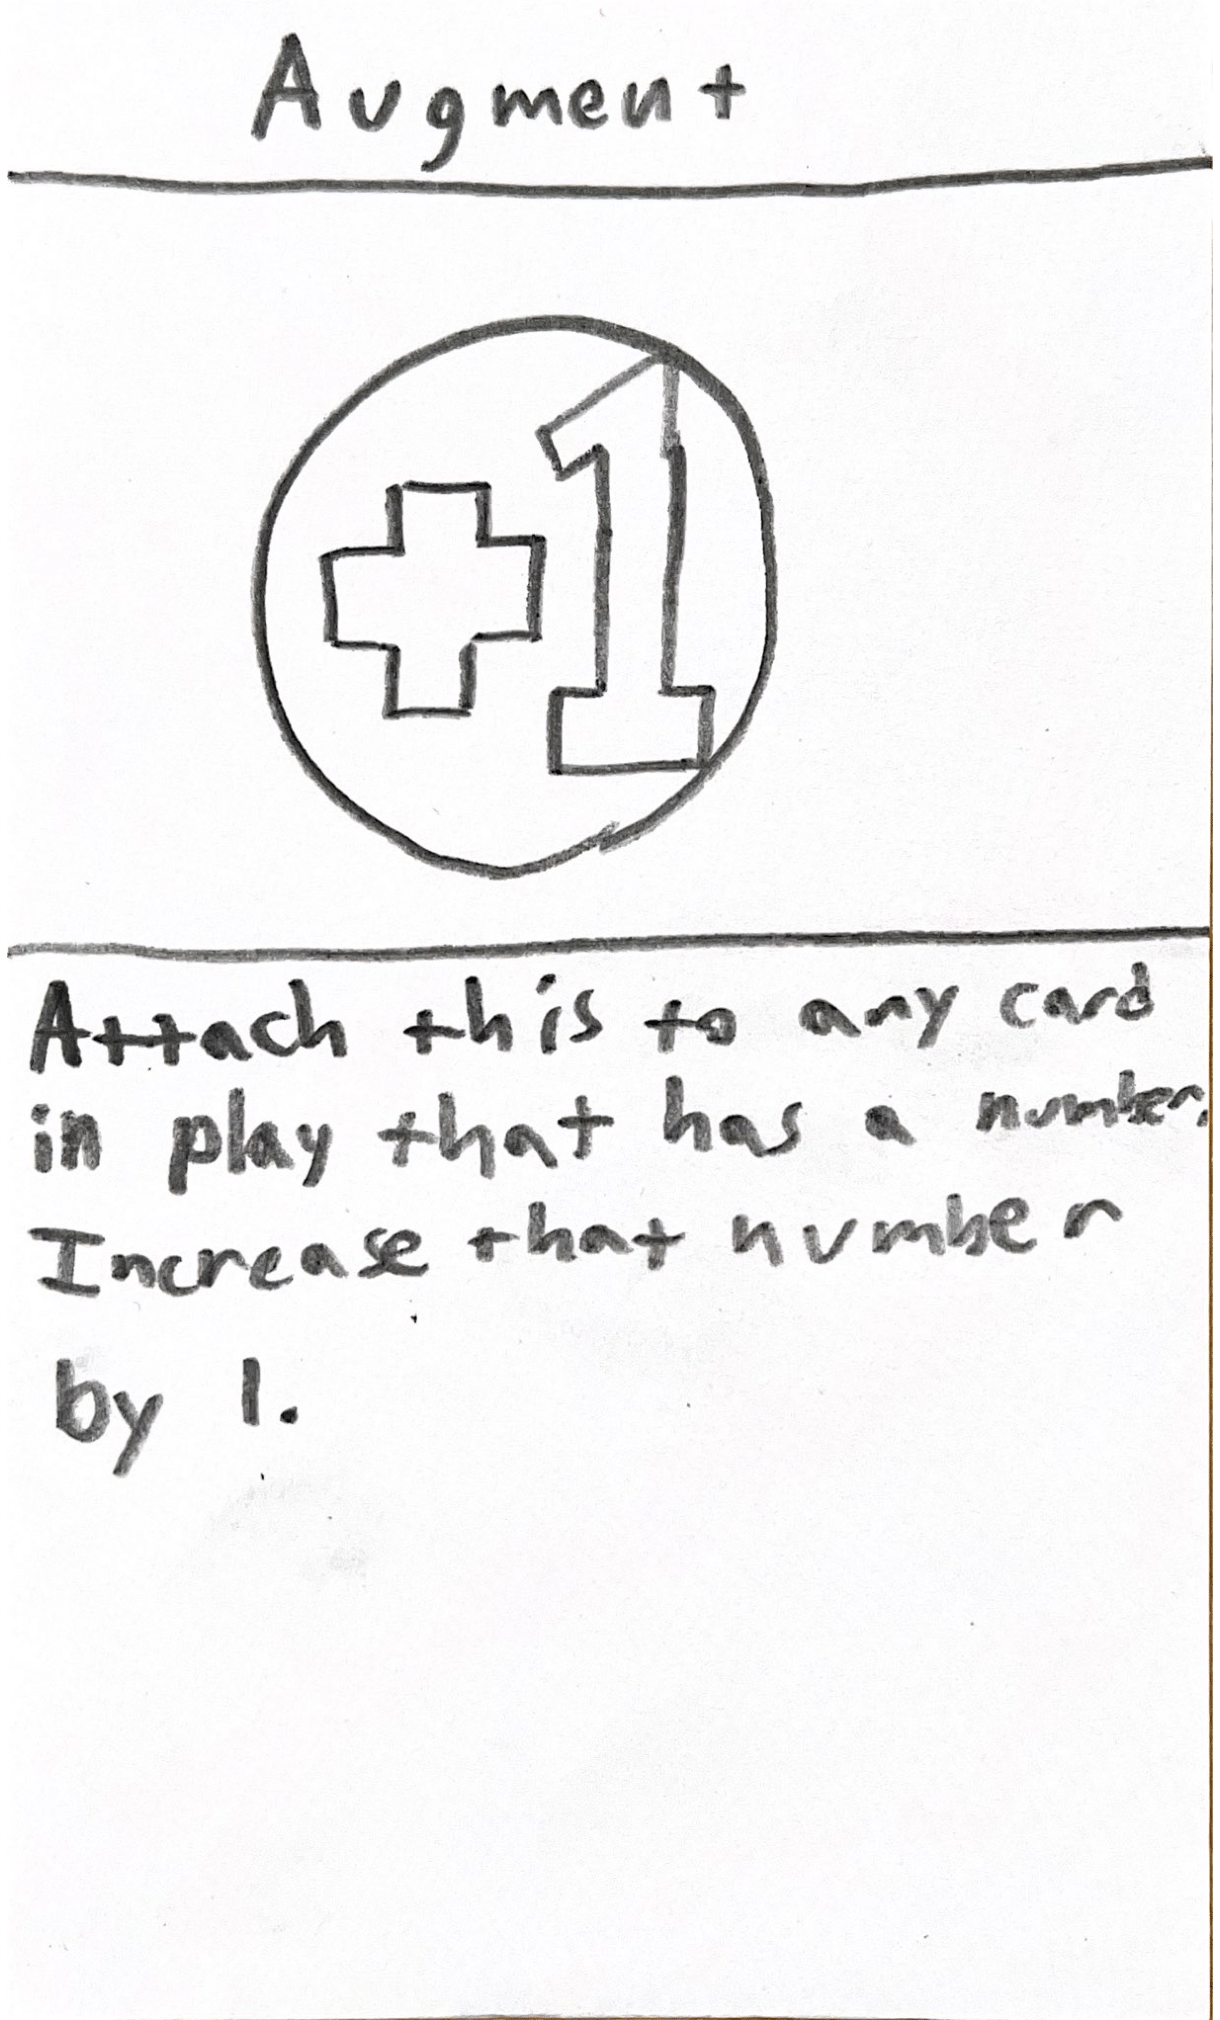 Augment
+1
Attach this to any card
in play that has a number.
Increase that number
by 1.